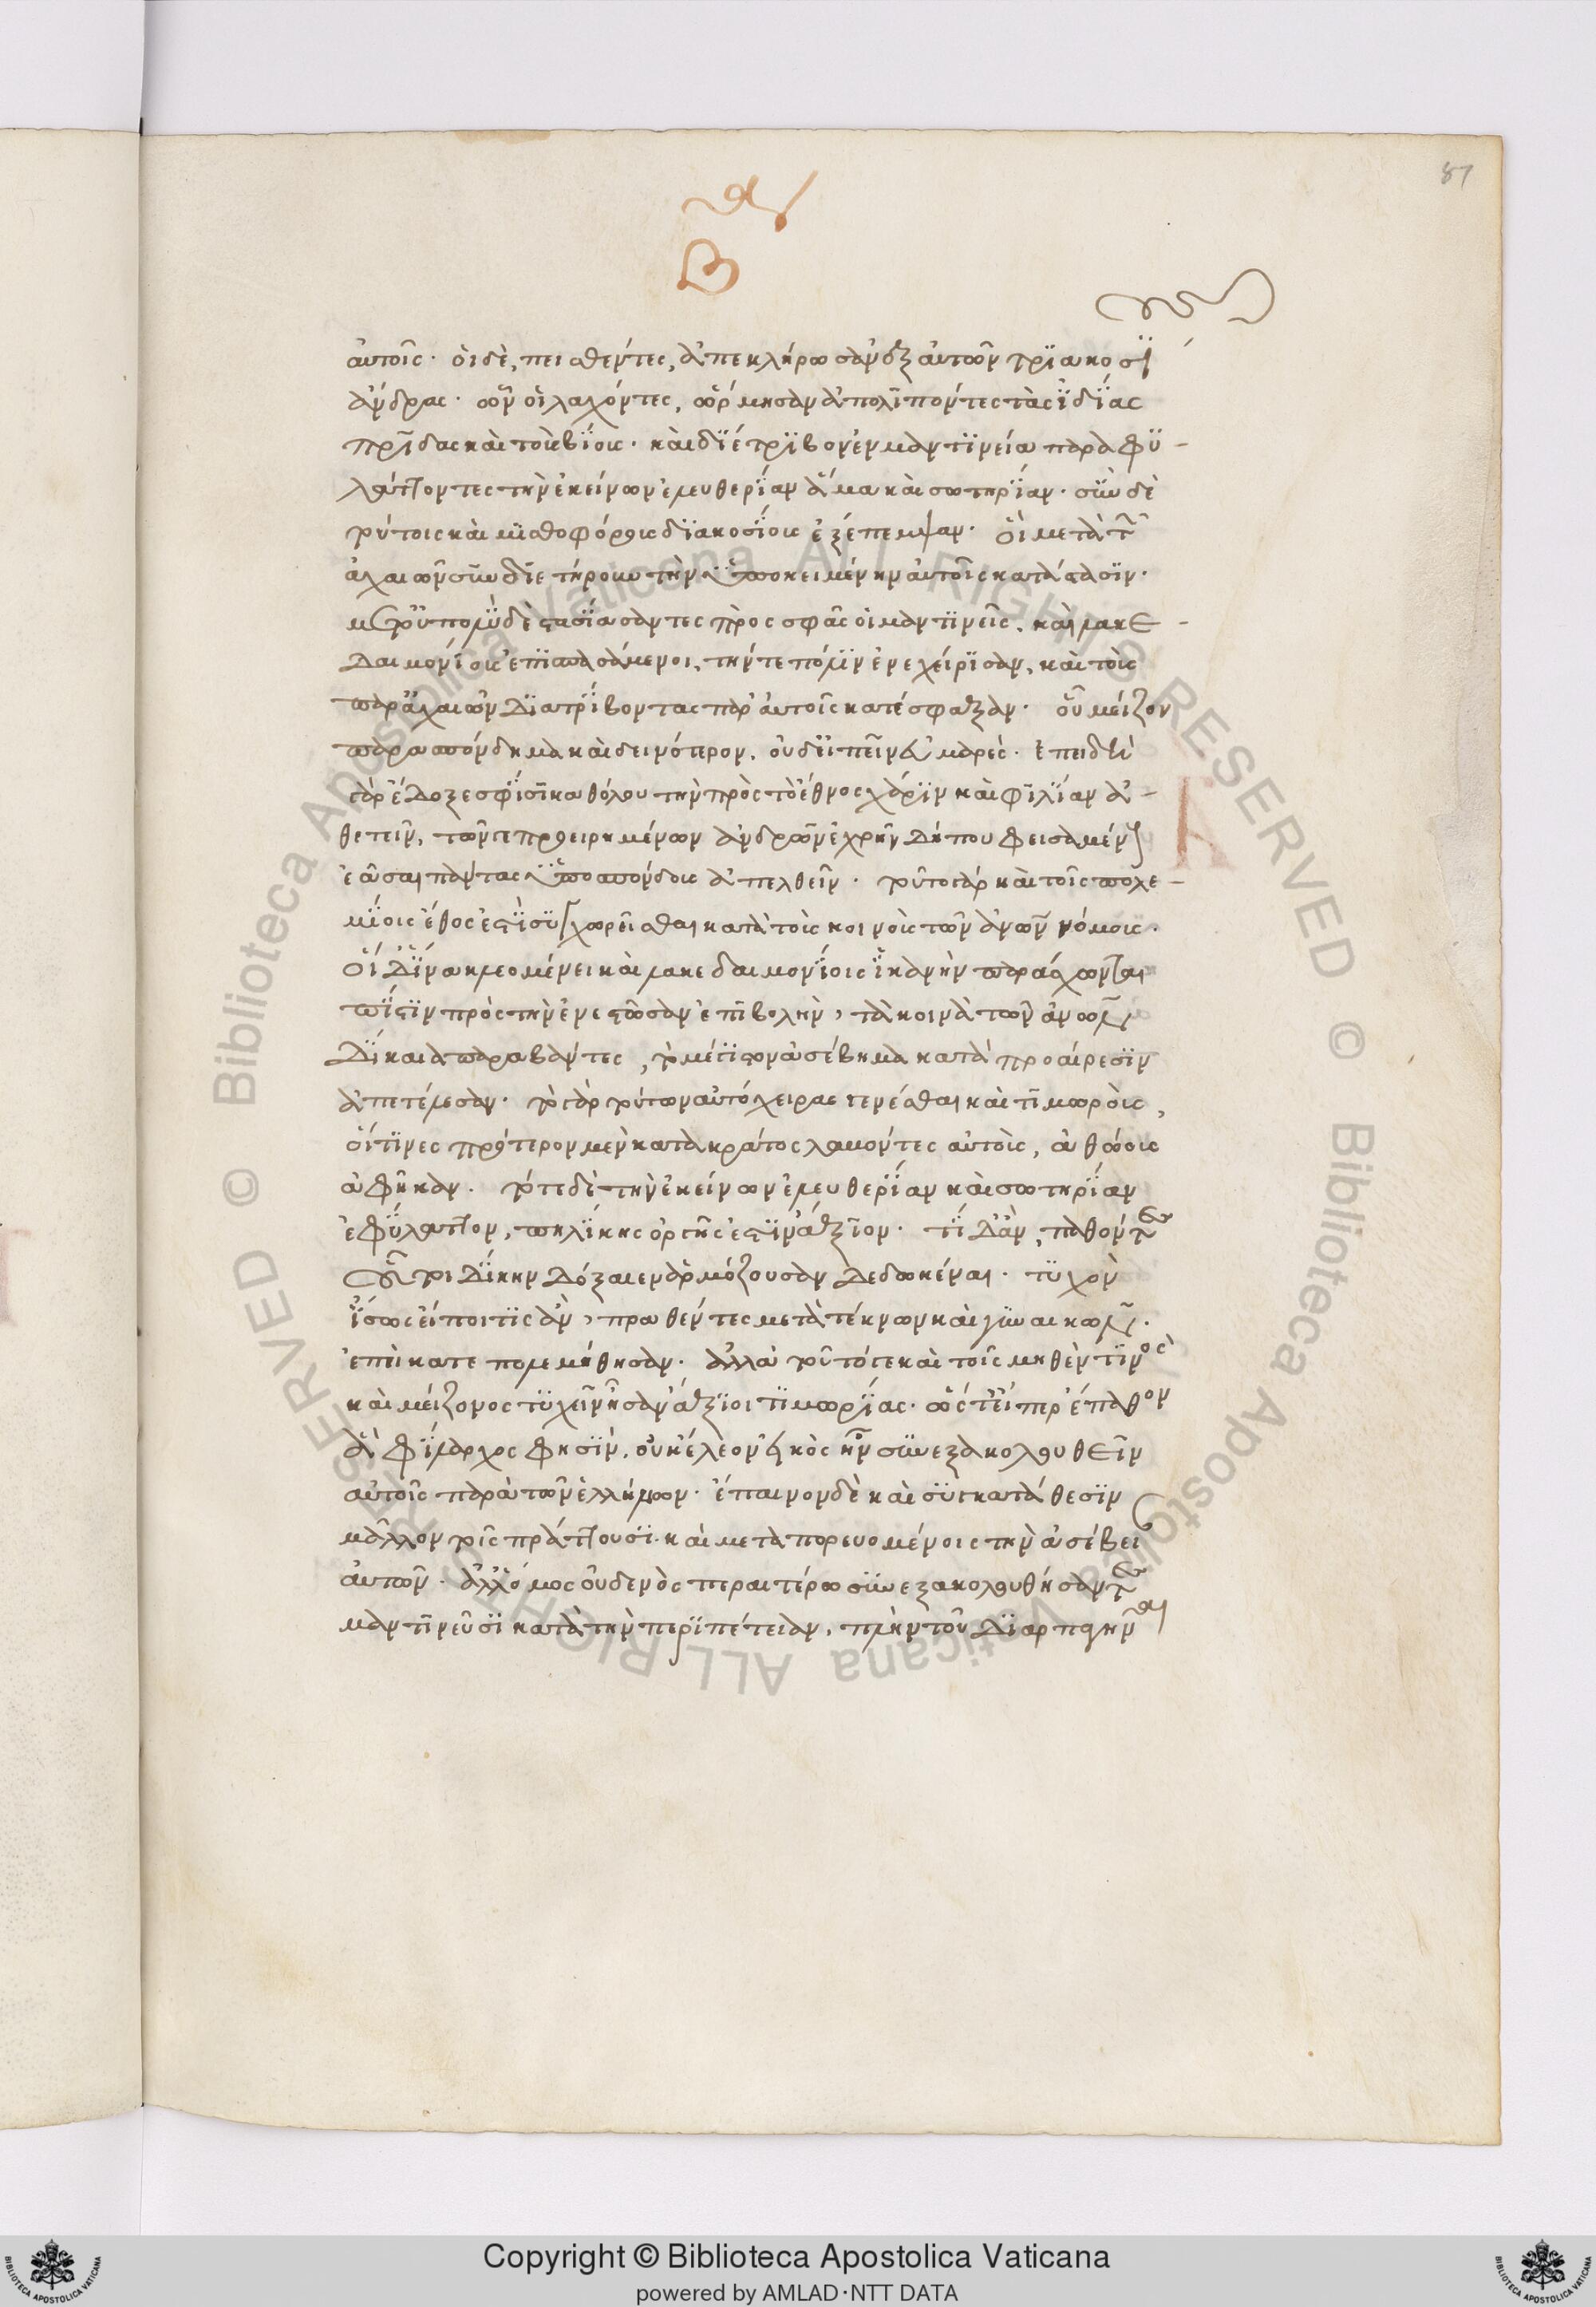 87
β
αὐτοῖς· οἱ δὲ, πεισθέντες, ἀπεκλήρωσαν ἐξ αὑτῶν τριακοσίους
ἄνδρας· ὧν οἱ λαχόντες, ὥρμησαν ἀπολιπόντες τὰς ἰδίας
πρίδας καὶ τοὺς βίους· καὶ διέτριβον ἐν μαντινείᾳ παραφυ-
λάττοντες τὴν ἐκείνων ἐλευθερίαν ἅμα καὶ σωτηρίαν· σὺν δὲ
τούτοις καὶ μισθοφόρους διακοσίους ἐξέπεμψαν· οἳ μετὰ τῶν
ἀχαιῶν συνδιετήρουν τὴν ὑποκειμένην αὐτοῖς κατάστασιν·
μετ οὐ πολὺ δὲ στασιάσαντες πρὸς σφᾶς οἱ μαντινεῖς, καὶ λακε-
δαιμονίους ἐπισπασάμενοι, τήν τε πόλιν ἐνεχείρισαν, καὶ τοὺς
παρ ἀχαιῶν διατρίβοντας παρ αὐτοῖς κατέσφαξαν· οὗ μεῖζον
παρασπόνδημα καὶ δεινότερον, οὐδ εἰπεῖν εὐμαρές· ἐπειδὴ
γὰρ ἔδοξε σφίσι καθόλου τὴν πρὸς τὸ ἔθνος χάριν καὶ φιλίαν ἀ-
θετεῖν, τῶν γε προειρημένων ἀνδρῶν ἐχρῆν δήπου φεισαμένους
ἐᾶσαι πάντας ὑποσπόνδους ἀπελθεῖν· τοῦτο γὰρ καὶ τοῖς πολε-
μίοις ἔθος ἐστὶ συγχωρεῖσθαι κατὰ τοὺς κοινοὺς τῶν ἀνων νόμους·
οἱ δ ἵνα κλεομένει καὶ λακεδαιμονίοις ἱκανὴν παράσχωνται
πίστιν πρὸς τὴν ἐνεστῶσαν ἐπιβολὴν, τὰ κοινὰ τῶν ἀνων
δίκαια παραβάντες, τὸ μέγιστον ἀσέβημα κατὰ προαίρεσιν
ἀπετέλεσαν· τὸ γὰρ τούτων αὐτόχειρας γενέσθαι καὶ τιμωροὺς,
οἵτινες πρότερον μὲν κατὰ κράτος λαβόντες αὐτοὺς, ἀθώους
ἀφῆκαν· τότε δὲ τὴν ἐκείνων ἐλευθερίαν καὶ σωτηρίαν
ἐφύλαττον, πηλίκης ὀργῆς ἐστιν ἄξιον· τί δ ἂν παθόντες
οὗτοι δίκην δόξαιεν ἁρμόζουσαν δεδωκέναι· τυχὸν
ἴσως εἴποι τις ἂν, πραθέντες μετὰ τέκνων καὶ γυναικῶν·
ἐπεὶ κατεπολεμήθησαν· ἀλλὰ τοῦτό γε καὶ τοῖς μηθὲν
καὶ μείζονος τυχεῖν ἦσαν ἄξιοι τιμωρίας· ὥστ εἴπερ ἔπαθον
ἃ φύλαρχος φησὶν, οὐκ ἔλεον εἰκὸς ἦν συνεξακολουθεῖν
αὐτοῖς παρὰ τῶν ἑλλήνων· ἔπαινον δὲ καὶ συγκατάθεσιν
μᾶλλον τοῖς πράττουσι καὶ μεταπορευομένοις τὴν ἀσέβειαν
αὐτῶν· ἀλλ ὅμως οὐδενὸς περαιτέρω συνεξακολουθήσαντος
μαντινεῦσι κατὰ τὴν περιπέτειαν, πλὴν τοῦ διαρπαγῆναι
Copyright © Biblioteca Apostolica Vaticana
powered by AMLAD·NTT DATA